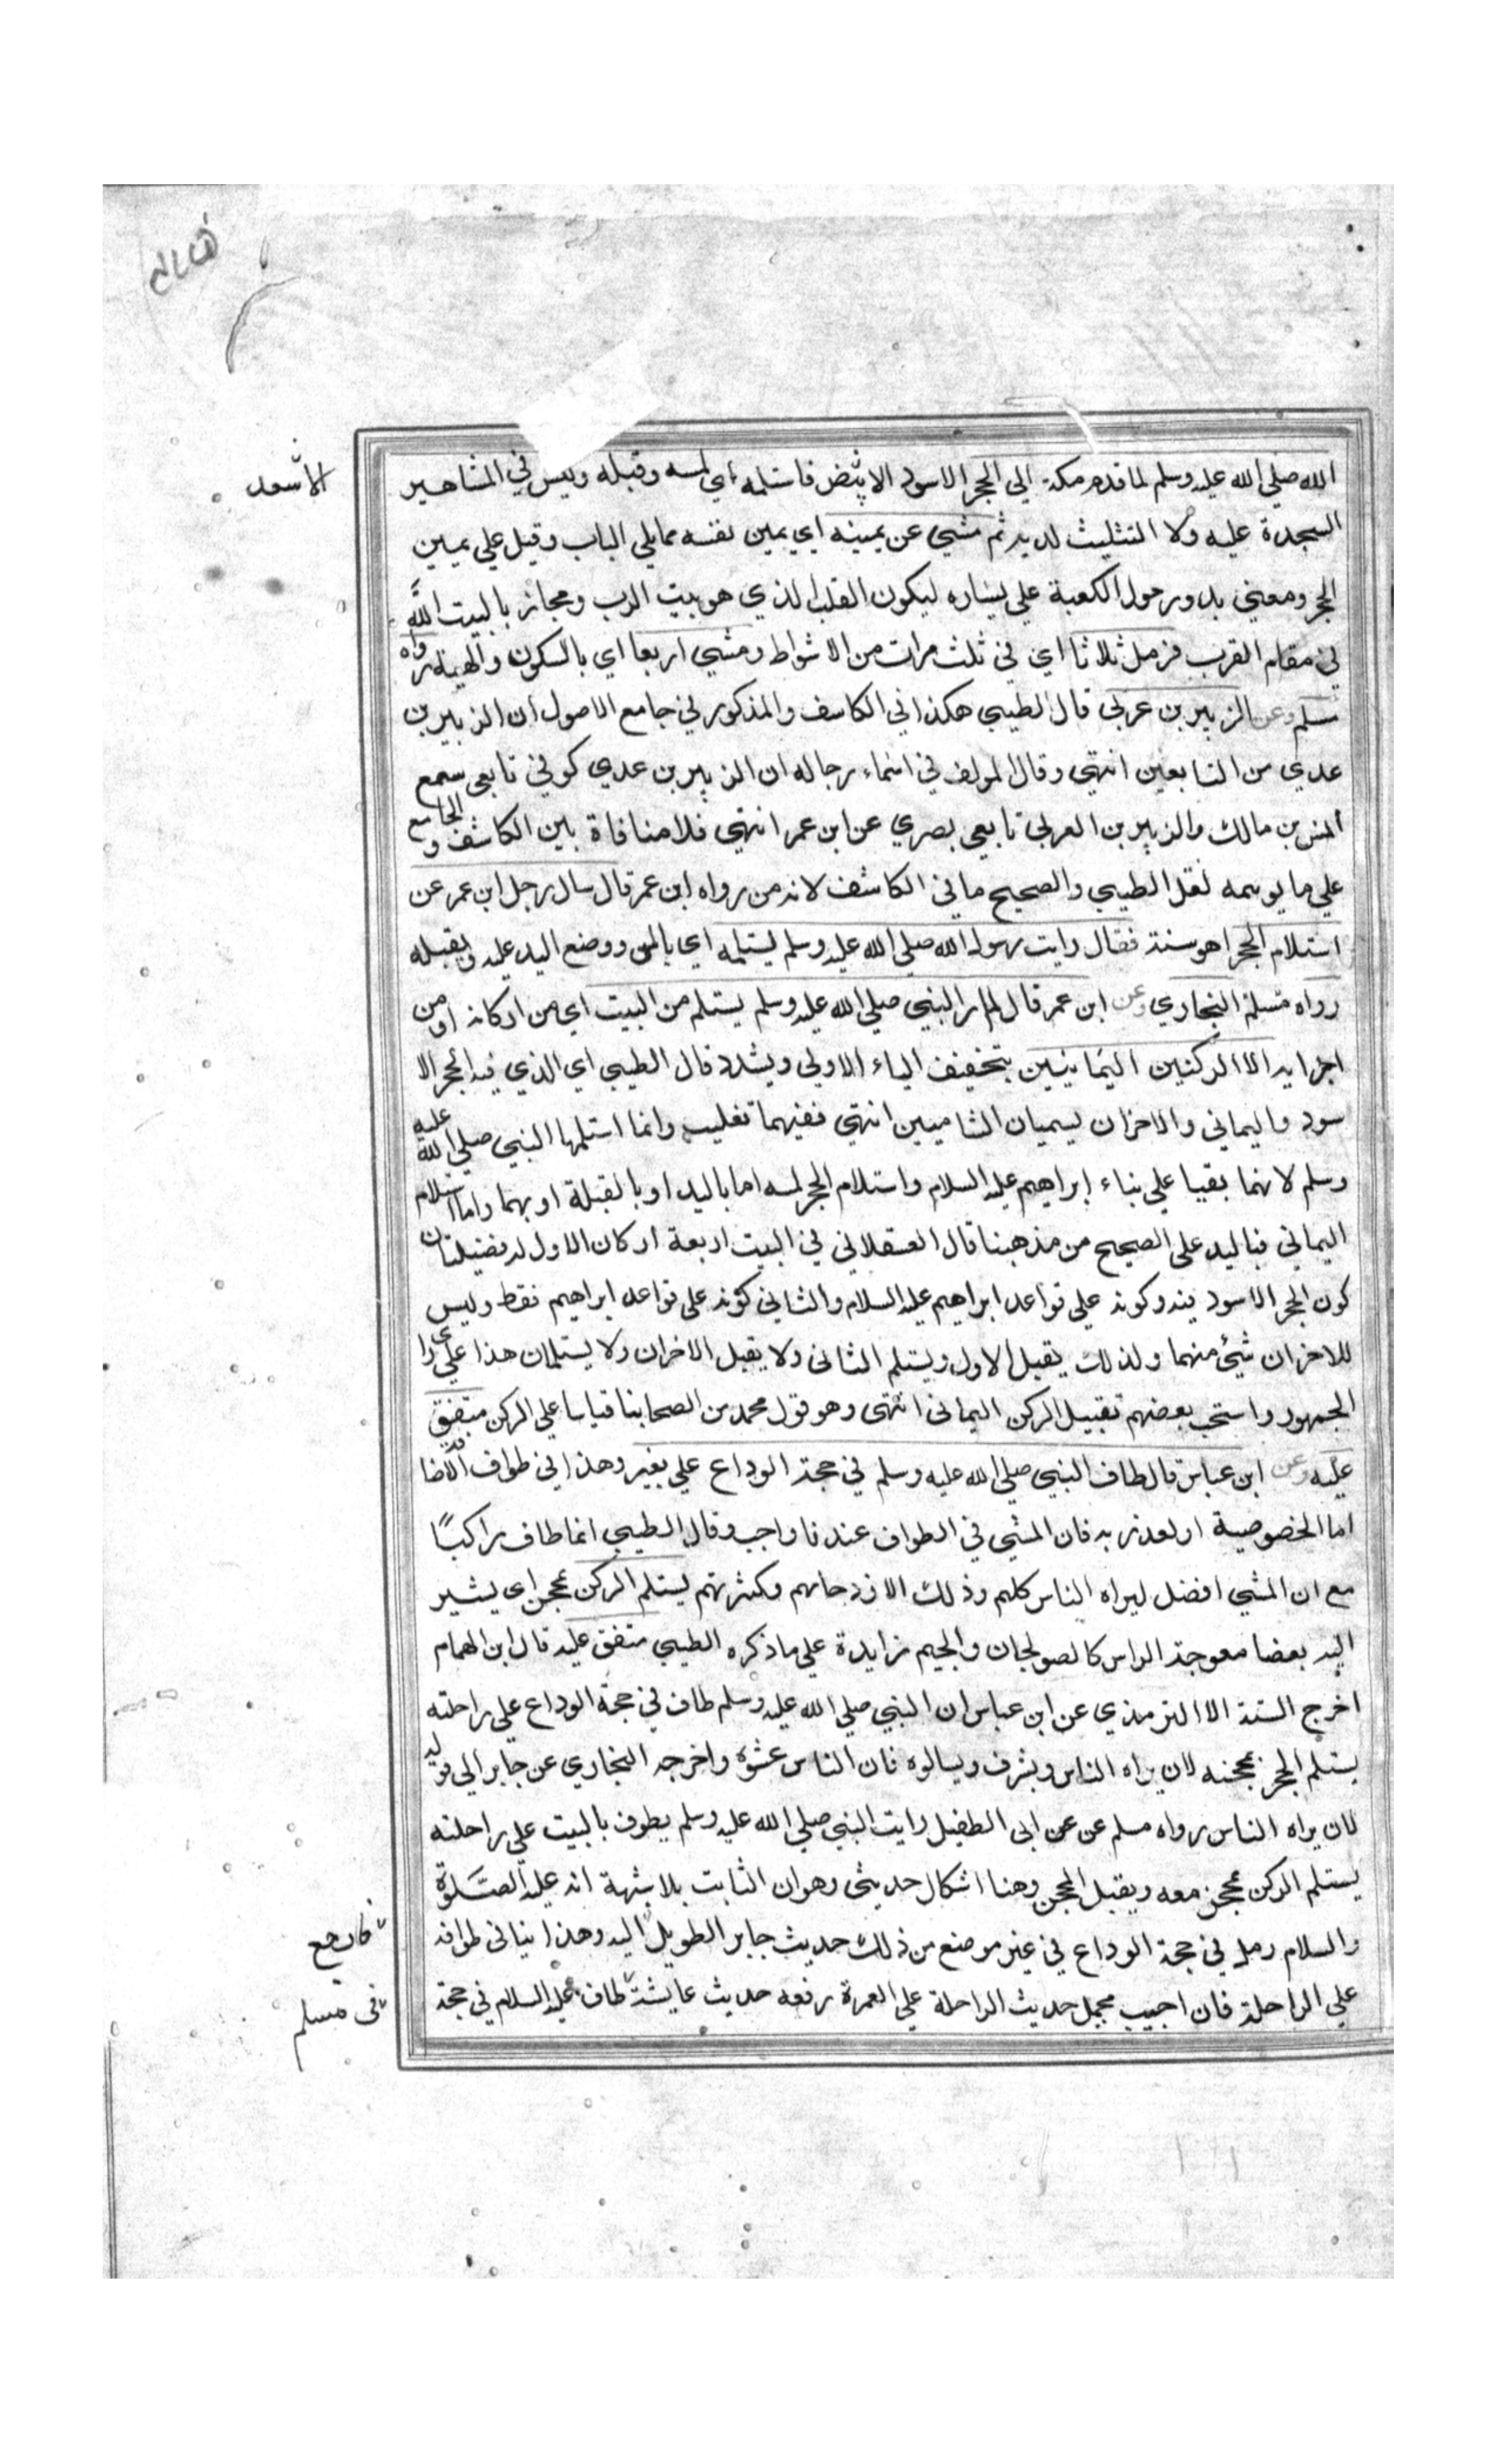 الله صلي الله عليه وسلم لما قدم مكة الي الحجر الاسود الابيض فاستلمه اي لمسه وقبله وليس في المشاهير
السجدة عليه ولا التثليث لديه ثم مشي عن يمينه اي يمين نفسه مما يلي الباب وقيل علي يمين
الحجر ومعني يدور حول الكعبة علي يساره ليكون القلب الذي هو بيت الرب ومجاز بالبيت الله
في مقام القرب فرمل ثلاثا اي في ثلث مرات من الاشواط ومشي اربعا اي بالسكون والهينة رواه
مسلم وعن الزبير بن عربي قال الطيبي هكذا في الكاشف والمذكور في جامع الاصول ان الزبير بن
عدي من التابعين انتهي وقال المولف في اسماء رجاله ان الزبير بن عدي كوفي تابعي سمع
انس بن مالك والزبير بن العربي تابعي بصري عن ابن عمر انتهي فلا منافاة بين الكاشف و الجامع
علي ما يوهمه نقل الطيبي والصحيح ما في الكاشف لانه من رواه ابن عمر قال سال رجل ابن عمر عن
استلام الحجر اهو سنة فقال رايت رسول الله صلي الله عليه وسلم يستلمه اي بالمس ووضع اليد عليه ويقبله
رواه البخاري وعن ابن عمر قال لم ار النبي صلي الله عليه وسلم يستلم من البيت اي من اركانه او من
اجزايه الا الركنين اليمانيين بتخفيف الياء الاولي ويشدد قال الطيبي اي الذي فيه الحجر الا
سود واليماني والاخران يسميان الشاميين انتهي ففيهما تغليب وانما استلمها النبي صلي الله عليه
وسلم لانهما بقيا علي بناء ابراهيم عليه السلام واستلام الحجر لمسه اما باليد او بالقبلة او بهما واما استلام
اليماني فباليد علي الصحيح من مذهبنا قال العسقلاني في البيت اربعة اركان الاول له فضيلتان
كون الحجر الاسود فيه وكونه علي قواعد ابراهيم عليه السلام والثاني كونه علي قواعد ابراهيم فقط وليس
للاخران شئ منهما ولذلك يقبل الاول ويستلم الثاني ولا يقبل الاخران ولا يستلمان هذا علي راي
الجمهور واستحب بعضهم تقبيل الركن اليماني انتهي وهو قول محمد من اصحابنا قياسا علي الركن متفق
عليه وعن ابن عباس قال طاف النبي صلي الله عليه وسلم في حجة الوداع علي بعير وهذا في طواف الافاضة
اما الخصوصية او لعذر به فان المشي في الطواف عندنا واجب وقال الطيبي انما طاف راكبًا
مع ان المشي افضل ليراه الناس كلهم وذلك الازدحامهم وكثرتهم يستلم الركن بمحجن اي يشير
اليه بعصا معوجة الراس كالصولجان والميم زايدة علي ما ذكره الطيبي متفق عليه قال ابن الهمام
اخرج الستة الا الترمذي عن ابن عباس ان النبي صلي الله عليه وسلم طاف في حجة الوداع علي راحلته
يستلم الحجر بمحجنه لان يراه الناس ويشرف ويسالوه فان الناس غشوه واخرجه البخاري عن جابر الي قوله
لان يراه الناس رواه مسلم عن عن ابي الطفيل رايت النبي صلي الله عليه وسلم يطوف بالبيت علي راحلته
يستلم الركن بمحجن معه ويقبل المحجن وهنا اشكال حديثي وهو ان الثابت بلا شبهة انه عليه الصلوة
والسلام رمل في حجة الوداع في غير موضع من ذلك حديث جابر الطويل اليه وهذا ينافي طوافه
علي الراحلة فان اجيب بحمل حديث الراحلة علي العمرة رفعه حديث عايشة طاف عليه السلام في حجة
الاسعد
فارجع
في مسلم